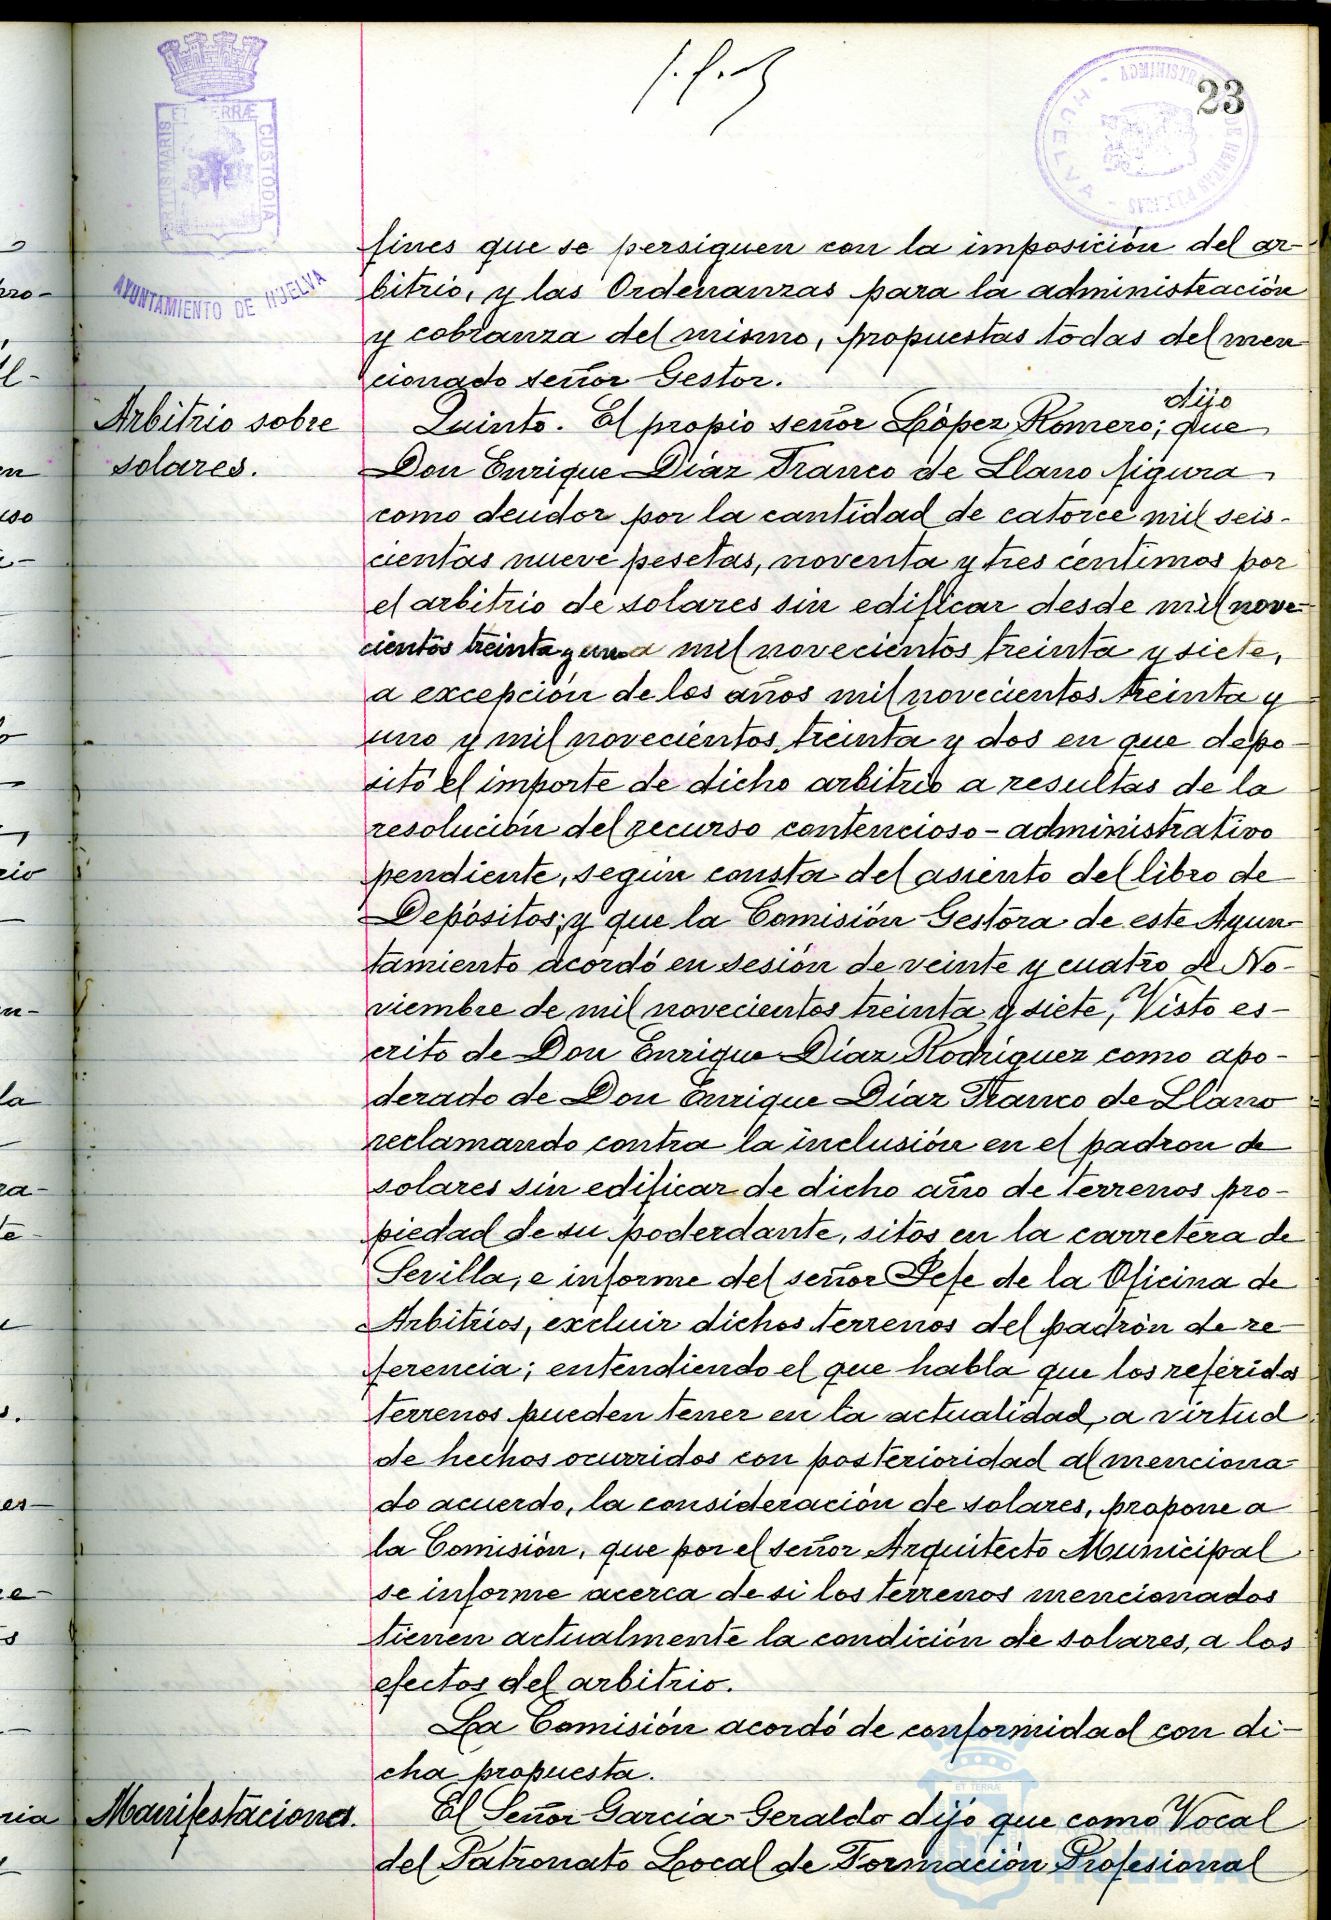 23
PORTUS MARIS ET TERRÆ CUSTODIA
AYUNTAMIENTO DE HUELVA
HUELVA
fines que se persiguen con la imposición del ar-
bitrio, y las Ordenanzas para la administración
y cobranza del mismo, propuestas todas del men
cionado señor Gestor.
Arbitrio sobre
solares.
dijo
Quinto. El propio señor López Romero; que
Don Enrique Díaz Franco de Llano figura
como deudor por la cantidad de catorce mil seis-
cientas nueve pesetas, noventa y tres céntimos por
el arbitrio de solares sin edificar desde mil nove-
cientos treinta y uno a mil novecientos treinta y siete,
a excepción de los años mil novecientos treinta y
uno y mil novecientos treinta y dos en que depo-
sitó el importe de dicho arbitrio a resultas de la
resolución del recurso contencioso-administrativo
pendiente, según consta del asiento del libro de
Depósitos; y que la Comisión Gestora de este Ayun-
tamiento acordó en sesión de veinte y cuatro de No-
viembre de mil novecientos treinta y siete, "Visto es-
crito de Don Enrique Díaz Rodríguez como apo-
derado de Don Enrique Díaz Franco de Llano
reclamando contra la inclusión en el padron de
solares sin edificar de dicho año de terrenos pro-
piedad de su poderdante, sitos en la carretera de
Sevilla, e informe del señor Jefe de la Oficina de
Arbitrios, excluir dichos terrenos del padrón de re-
ferencia; entendiendo el que habla que los referidos
terrenos pueden tener en la actualidad, a virtud
de hechos ocurridos con posterioridad al menciona-
do acuerdo, la consideración de solares, propone a
la Comisión, que por el señor Arquitecto Municipal
se informe acerca de si los terrenos mencionados
tienen actualmente la condición de solares, a los
efectos del arbitrio.
La Comisión acordó de conformidad con di-
cha propuesta.
Manifestaciones.
El Señor García Geraldo dijo que como Vocal
del Patronato Local de Formación Profesional
Ayuntamiento de
HUELVA